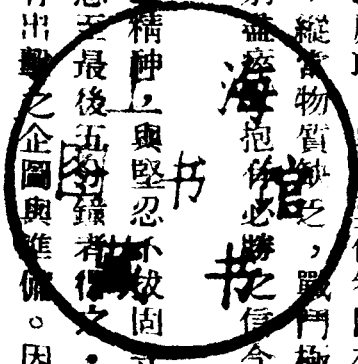 縱當物質缺乏，戰鬥極
盡瘁抱必勝之信念
精神，與堅忍不拔固
至最後五分鐘者得之，
出擊之企圖與準備。因
上海图书馆藏书